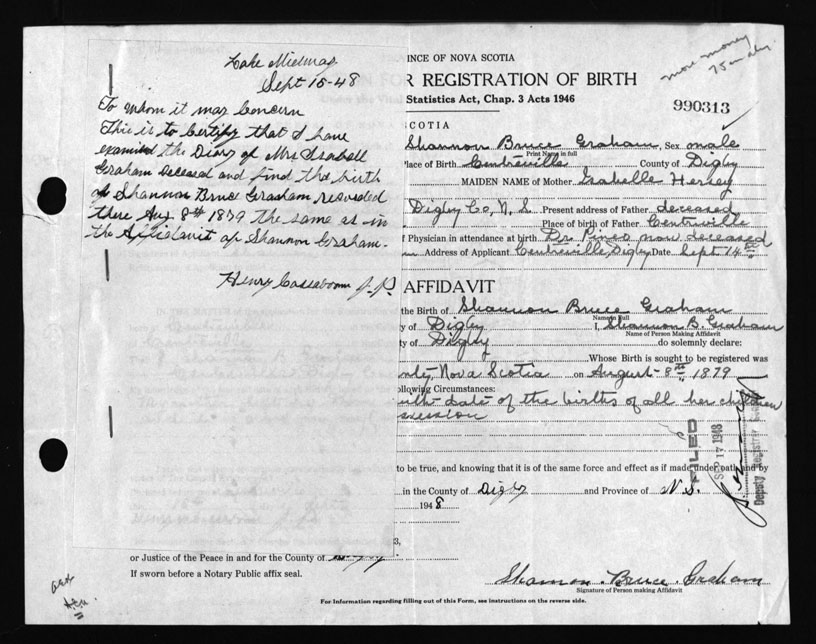 Lake Midway
Sept 15-48
To whom it may Concern
This is to Certify that I have
examined the Diary of Mrs Isabell
Graham Deceased and find the birth
of Shannon Bruce Graham recorded
there Aug 8th 1879 the same as in
the Affidavit of Shannon Graham.
Henry Cossaboom J.P.
more money
INCE OF NOVA SCOTIA
R REGISTRATION OF BIRTH
Statistics Act, Chap. 3 Acts 1946
990313
SCOTIA
Shannon Bruce Graham, Sex male
Print Name in full
Place of Birth Centreville County of Digby
MAIDEN NAME of Mother Isabelle Hersey
Digby Co, N.S. Present address of Father deceased
Place of birth of Father Centreville
f Physician in attendance at birth Dr. now deceased
Address of Applicant Centreville Digby Date Sept 14
AFFIDAVIT
the Birth of Shannon Bruce Graham
Name in Full
y of Digby I, Shannon B. Graham
Name of Person Making Affidavit
ty of Digby do solemnly declare:
Whose Birth is sought to be registered was
nty, Nova Scotia on August 8th 1879
ollowing Circumstances:
irth date of the births of all her children
session
to be true, and knowing that it is of the same force and effect as if made under oath and by
in the County of Digby and Province of N.S.
1948
FILED
SEP 17 1948
Deputy Registrar
3,
or Justice of the Peace in and for the County of
If sworn before a Notary Public affix seal.
Shannon Bruce Graham
Signature of Person making Affidavit
For Information regarding filling out of this Form, see instructions on the reverse side.